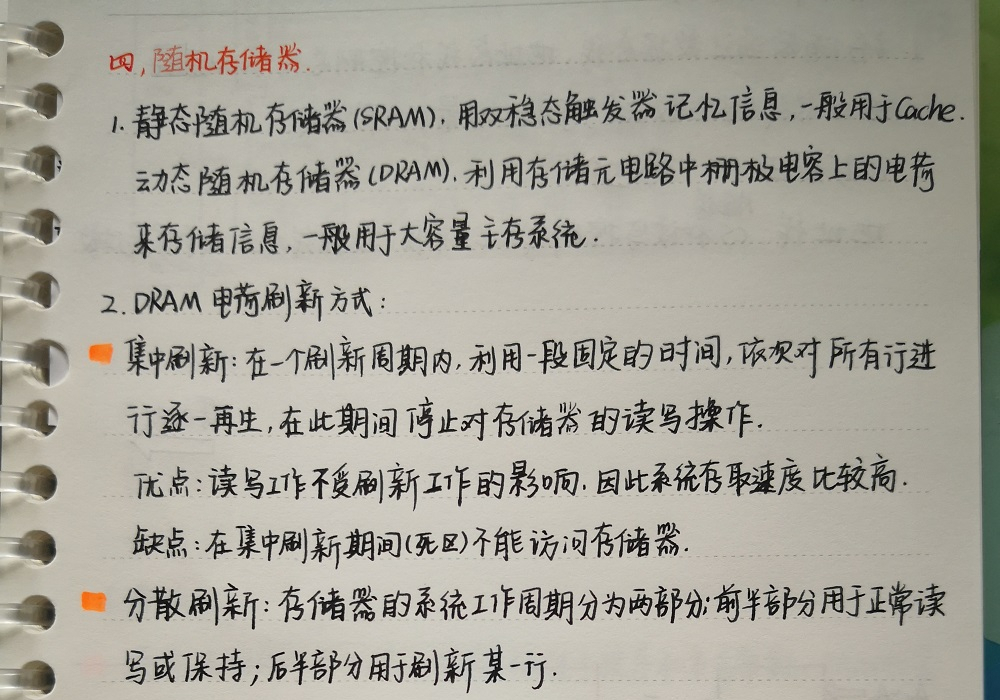 四,随机存储器.
1.静态随机存储器(SRAM),用双稳态触发器记忆信息,一般用于Cache.
动态随机存储器(DRAM),利用存储元电路中栅极电容上的电荷
来存储信息,一般用于大容量主存系统.
2.DRAM电荷刷新方式:
集中刷新:在一个刷新周期内,利用一段固定的时间,依次对所有行进
行逐一再生,在此期间停止对存储器的读写操作.
优点:读写工作不受刷新工作的影响,因此系统存取速度比较高.
缺点:在集中刷新期间(死区)不能访问存储器.
分散刷新:存储器的系统工作周期分为两部分;前半部分用于正常读
写或保持;后半部分用于刷新某一行.